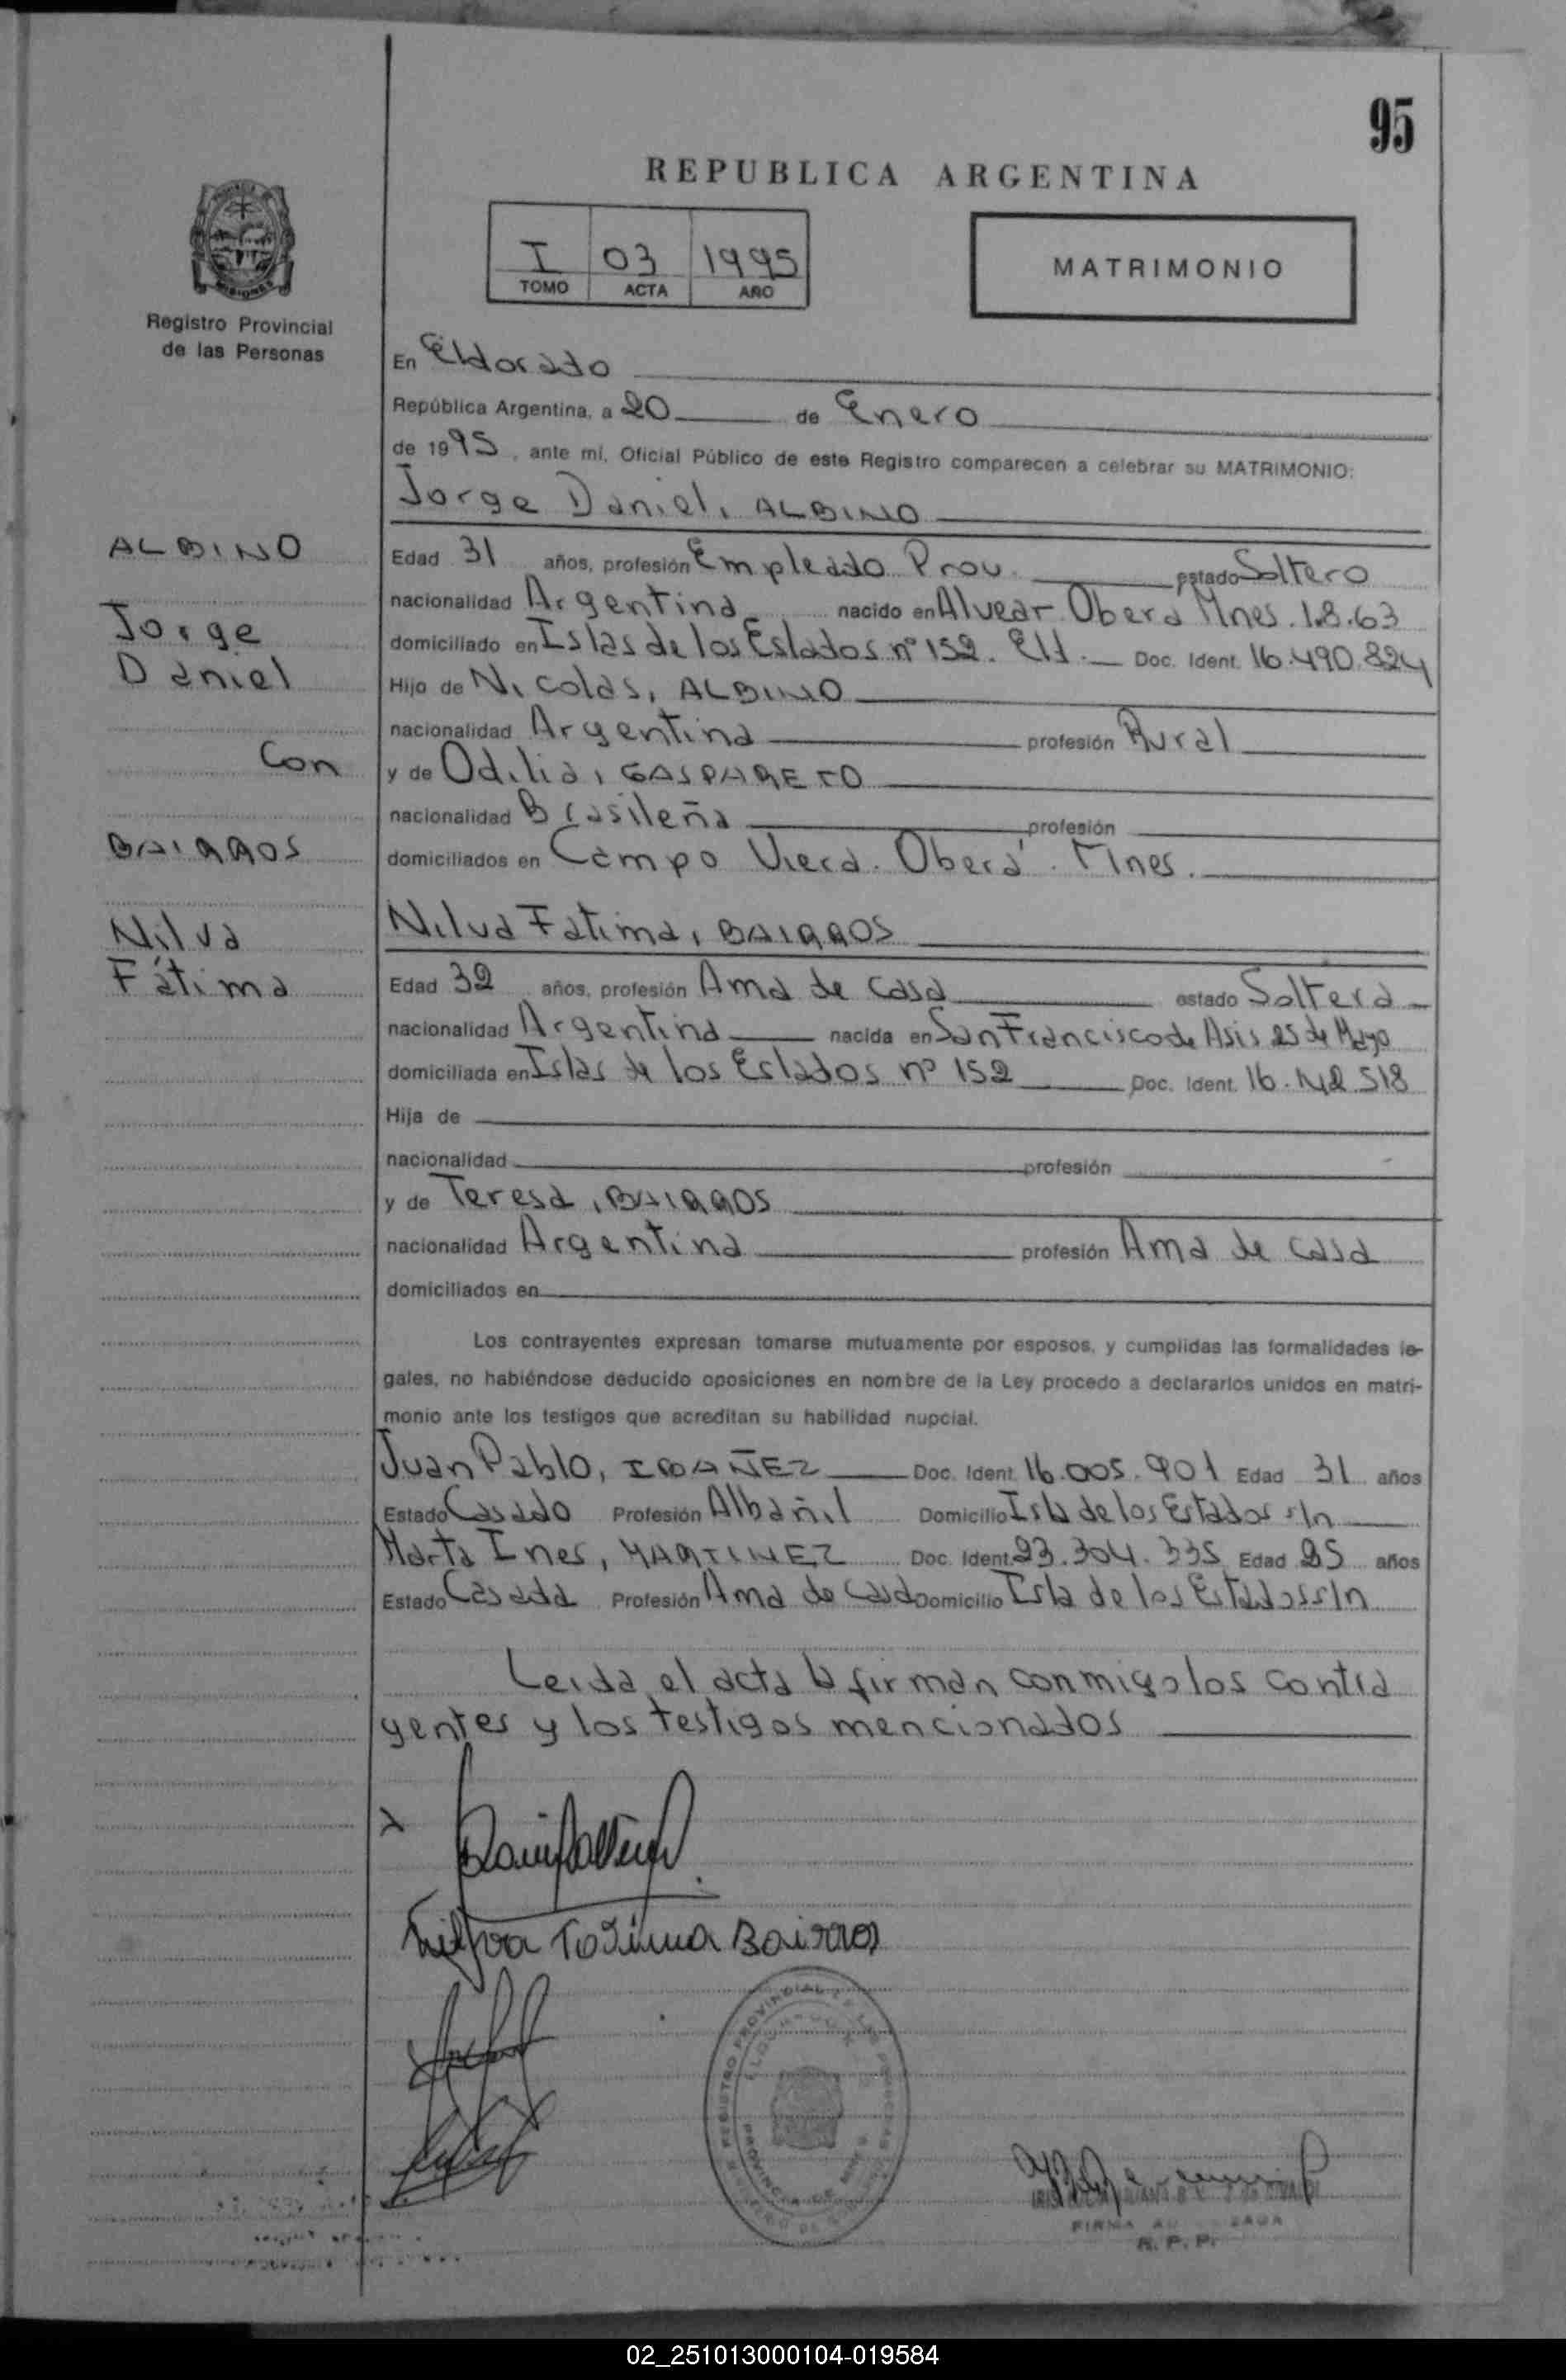 95
REPUBLICA ARGENTINA
I 03 1995
TOMO ACTA AÑO
MATRIMONIO
MISIONES
Registro Provincial
de las Personas
En Eldorado
República Argentina, a 20 de Enero
de 1995, ante mí, Oficial Público de este Registro comparecen a celebrar su MATRIMONIO:
Jorge Daniel, ALBINO
ALBINO
Jorge
Daniel
Con
BAIRROS
Nilva
Fátima
Edad 31 años, profesión Empleado Prov. estado Soltero
nacionalidad Argentina nacido en Alvear Oberá Mnes. 1.8.63
domiciliado en Islas de los Estados nº 152. Eld. Doc. Ident. 16.490.824
Hijo de Nicolas, ALBINO
nacionalidad Argentina profesión Rural
y de Odilia, GASPARETO
nacionalidad Brasileña profesión
domiciliados en Campo Viera. Oberá. Mnes.
Nilva Fatima, BAIRROS
Edad 32 años, profesión Ama de Casa estado Soltera
nacionalidad Argentina nacida en San Francisco de Asis 25 de Mayo
domiciliada en Islas de los Estados nº 152 Doc. Ident. 16.142.518
Hija de
nacionalidad profesión
y de Teresa, BAIRROS
nacionalidad Argentina profesión Ama de Casa
domiciliados en
Los contrayentes expresan tomarse mutuamente por esposos, y cumplidas las formalidades le-
gales, no habiéndose deducido oposiciones en nombre de la Ley procedo a declararlos unidos en matri-
monio ante los testigos que acreditan su habilidad nupcial.
Juan Pablo, IBAÑEZ Doc. Ident. 16.005.901 Edad 31 años
Estado Casado Profesión Albañil Domicilio Isla de los Estados s/n
Marta Ines, MARTINEZ Doc. Ident. 23.304.335 Edad 25 años
Estado Casada Profesión Ama de Casa Domicilio Isla de los Estados s/n
Leida el acta la firman conmigo los contra
yentes y los testigos mencionados
Nilva Fatima Bairros
REGISTRO PROVINCIAL DE LAS PERSONAS
PROVINCIA DE
FIRMA
R. P. P.
02_251013000104-019584